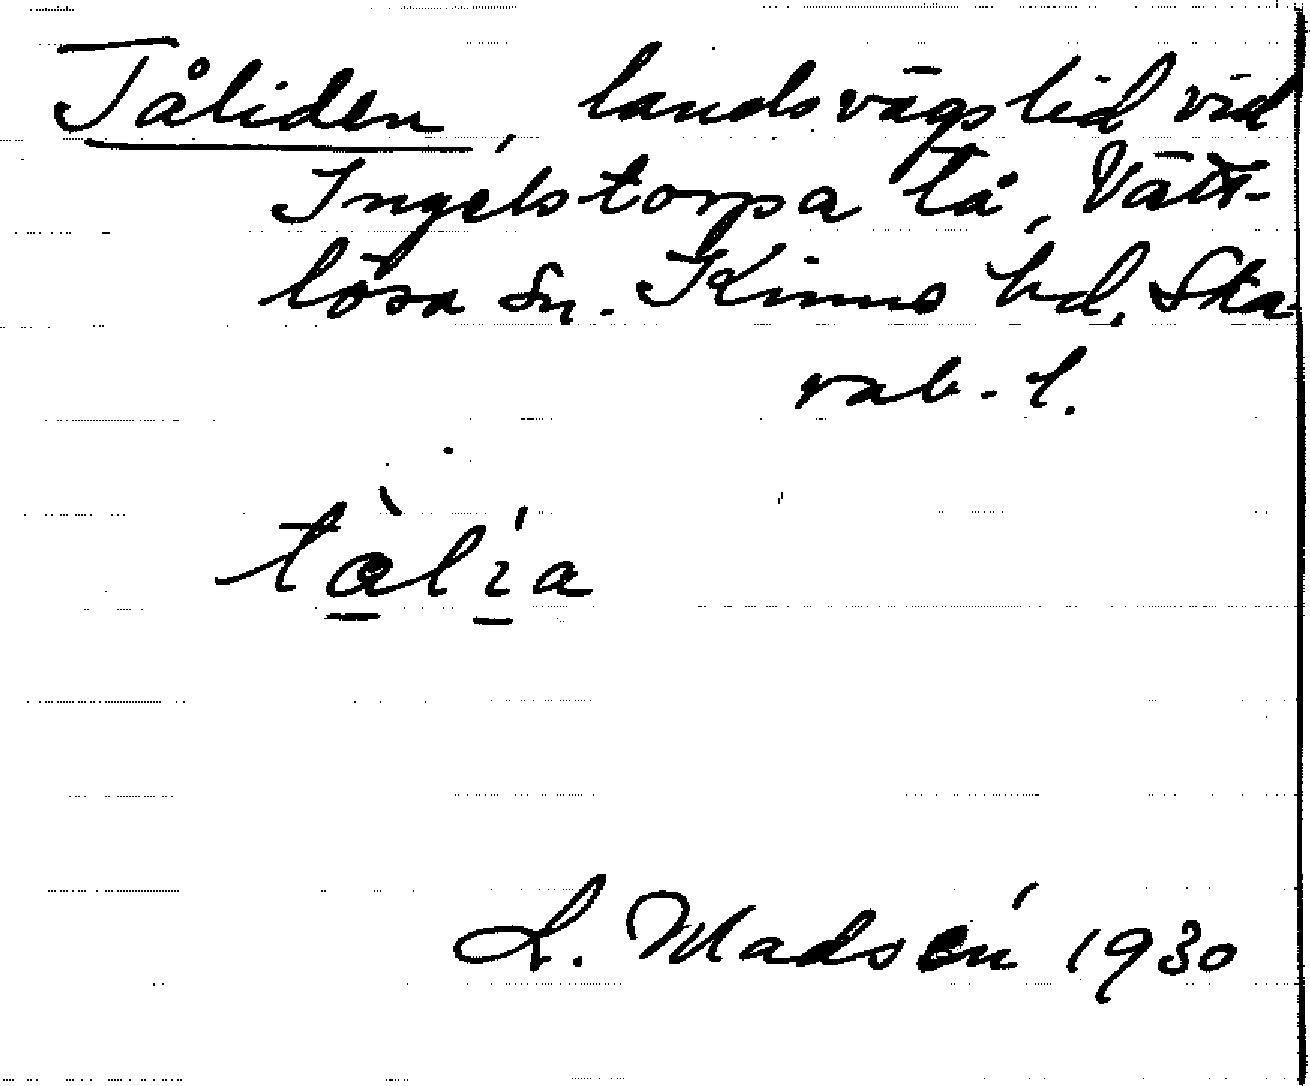 Tåliden, landsvägslid vid
Ingelstorpa tå, Vätt-
lösa sn. Kinne hd, Ska-
rab. l.
tàlía
L. Madsén 1930